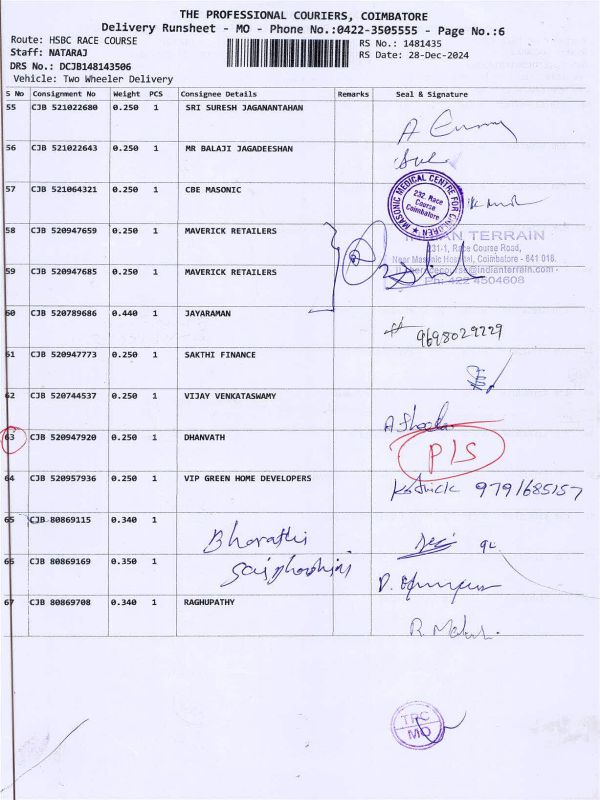 THE PROFESSIONAL COURIERS, COIMBATORE
Delivery Runsheet - MO - Phone No.:0422-3505555 - Page No.:6
Route: HSBC RACE COURSE
RS No.: 1481435
Staff: NATARAJ
RS Date: 28-Dec-2024
DRS No.: DCJB148143506
Vehicle: Two Wheeler Delivery
S No Consignment No Weight PCS Consignee Details Remarks Seal & Signature
55 CJB 521022680 0.250 1 SRI SURESH JAGANANTAHAN
56 CJB 521022643 0.250 1 MR BALAJI JAGADEESHAN
57 CJB 521064321 0.250 1 CBE MASONIC
MASONIC MEDICAL CENTRE FOR CHILDREN
232, Race
Course
Coimbatore
58 CJB 520947659 0.250 1 MAVERICK RETAILERS
TERRAIN
231-1, Race Course Road,
Near Masonic Hospital, Coimbatore - 641 018.
59 CJB 520947685 0.250 1 MAVERICK RETAILERS
@indianterrain.com
Ph: 422 4504608
60 CJB 520789686 0.440 1 JAYARAMAN
9698029229
61 CJB 520947773 0.250 1 SAKTHI FINANCE
62 CJB 520744537 0.250 1 VIJAY VENKATASWAMY
63 CJB 520947920 0.250 1 DHANVATH
P/S
64 CJB 520957936 0.250 1 VIP GREEN HOME DEVELOPERS
9791685157
65 CJB 80869115 0.340 1
Bharathi
66 CJB 80869169 0.350 1
67 CJB 80869708 0.340 1 RAGHUPATHY
TPC
MO